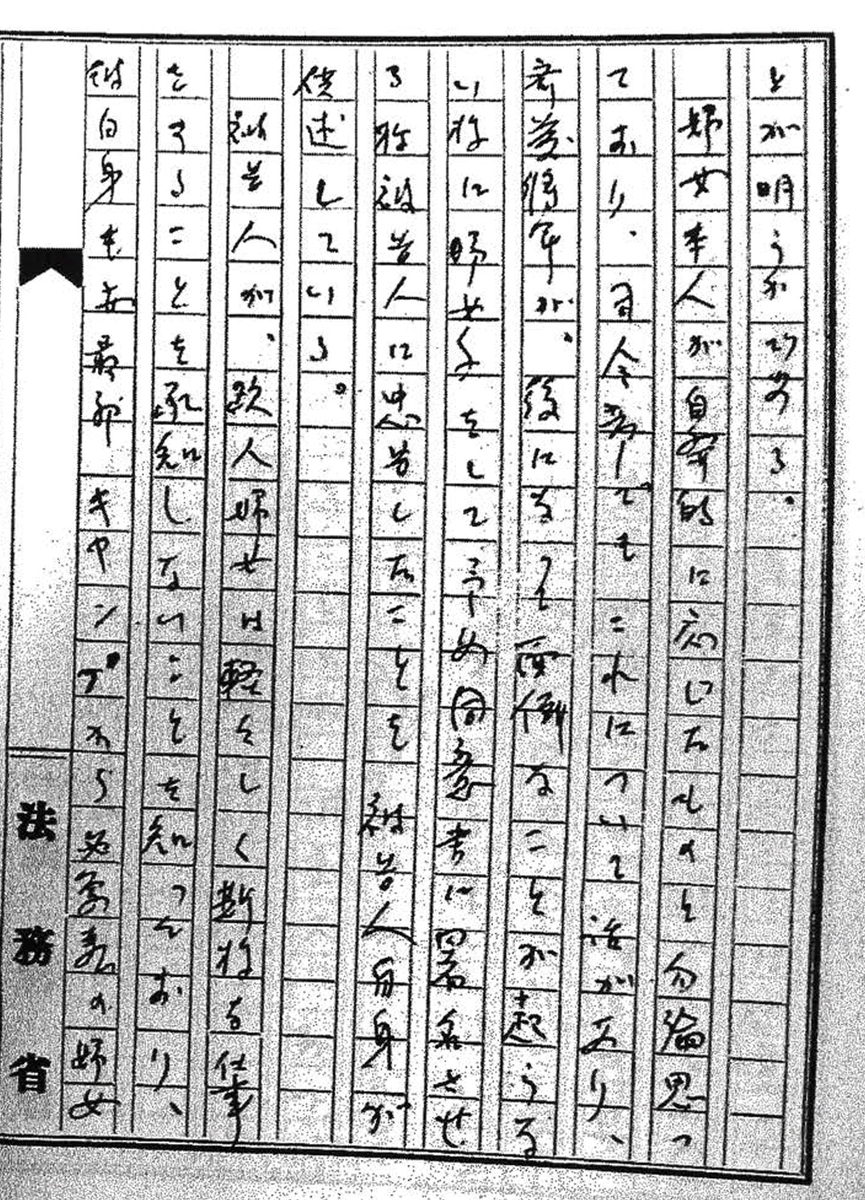 とが明らかである。
婦女本人が自発的に応じたものと勿論思っ
ており、司令部としてもこれについて話があり、
が、後になって面倒なことが起らな
い様に婦女子をして予め同意書に署名させ
る様被告人に忠告したことを被告人自身が
供述している。
被告人が、欧人婦女は軽々しく斯様な仕事
をすることを承知しないことを知っており、
彼自身も亦最初キャンプから必要数の婦女
法務省